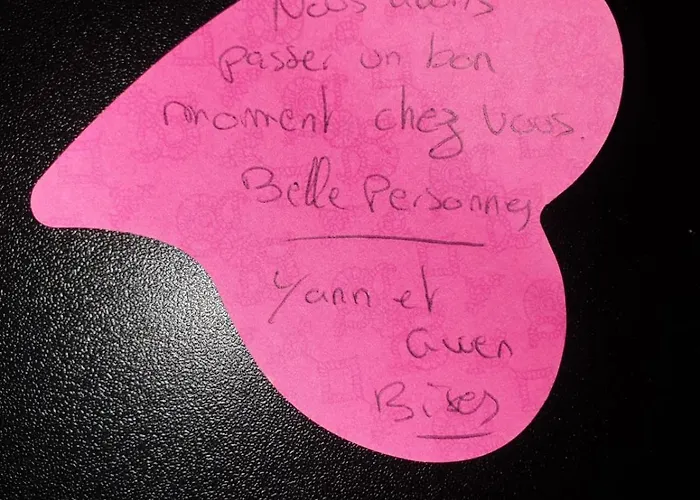 Nous avons
passer un bon
moment chez vous.
Belle Personnes
Yann et
Gwen
Bises